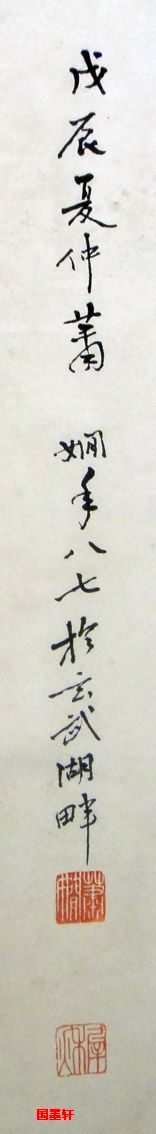 戊辰夏仲萧 娴年八七于玄武湖畔
萧娴
国墨轩